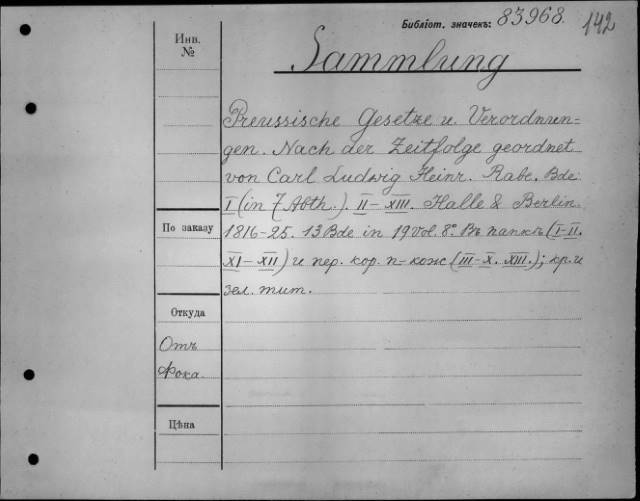 Библіот. значекъ: 83968. 142
Инв.
№
Sammlung
Preussische Gesetze u. Verordnun-
gen. Nach der Zeitfolge geordnet
von Carl Ludwig Heinr. Rabe. Bde
I (in 7 Abth.). II–XIII. Halle & Berlin.
По заказу
1816–25. 13 Bde in 19 Vol. 8º. Въ папкѣ (I–II.
XI–XII) и пер. кор. п-кож (III–X. XIII.); кр. и
зел. тит.
Откуда
Отъ
Фока.
Цѣна